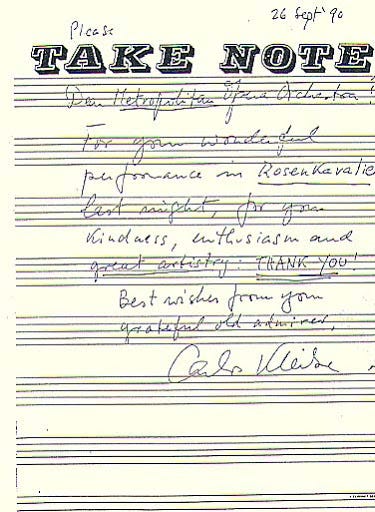 26 Sept' 90
Please
TAKE NOTE
Dear Metropolitan Opera Orchestra!
For your wonderful
performance in Rosenkavalie
last night, for your
kindness, enthusiasm and
great artistry: THANK YOU!
Best wishes from your
grateful old admirer,
Carlos Kleiber